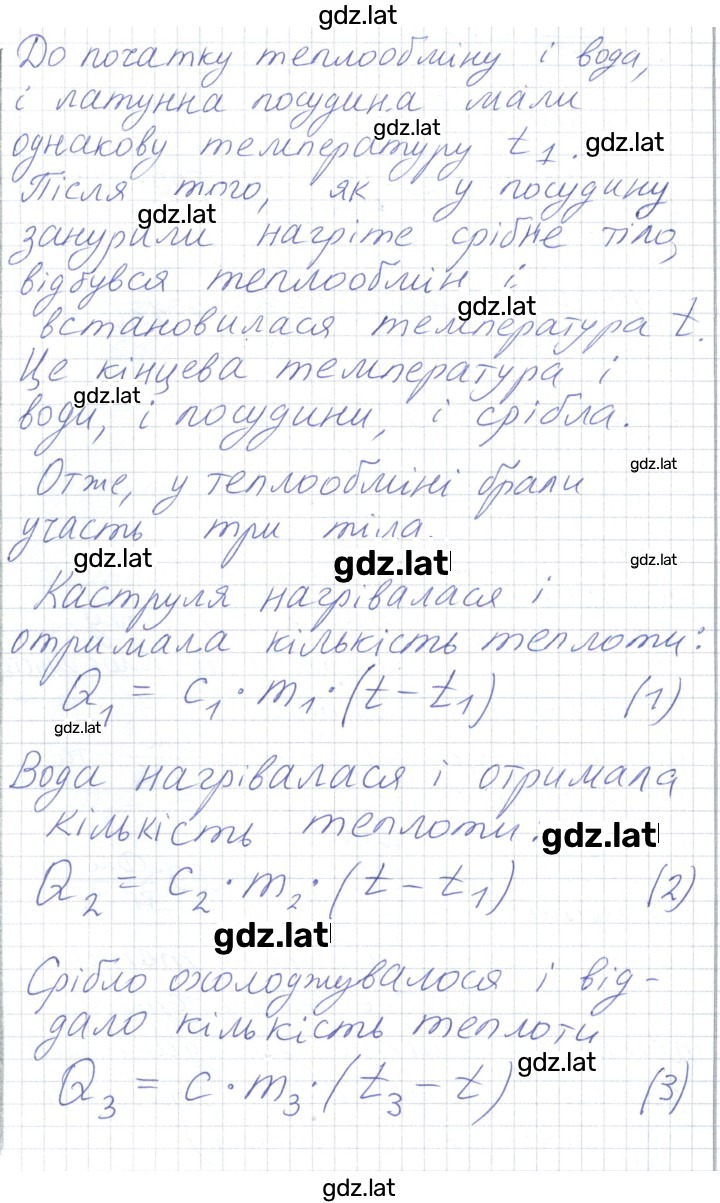 gdz.lat
До початку теплообміну і вода,
і латунна посудина мали
gdz.lat
однакову температуру t₁. gdz.lat
Після того, як у посудину
gdz.lat
занурили нагріте срібне тіло,
відбувся теплообмін і
gdz.lat
встановилася температура t.
Це кінцева температура і
gdz.lat
води, і посудини, і срібла.
gdz.lat
Отже, у теплообміні брали
участь три тіла.
gdz.lat gdz.lat gdz.lat
Каструля нагрівалася і
отримала кількість теплоти:
Q₁ = c₁·m₁·(t − t₁) (1)
gdz.lat
Вода нагрівалася і отримала
кількість теплоти: gdz.lat
Q₂ = c₂·m₂·(t − t₁) (2)
gdz.lat
Срібло охолоджувалося і від-
дало кількість теплоти
gdz.lat
Q₃ = c·m₃·(t₃ − t) (3)
gdz.lat